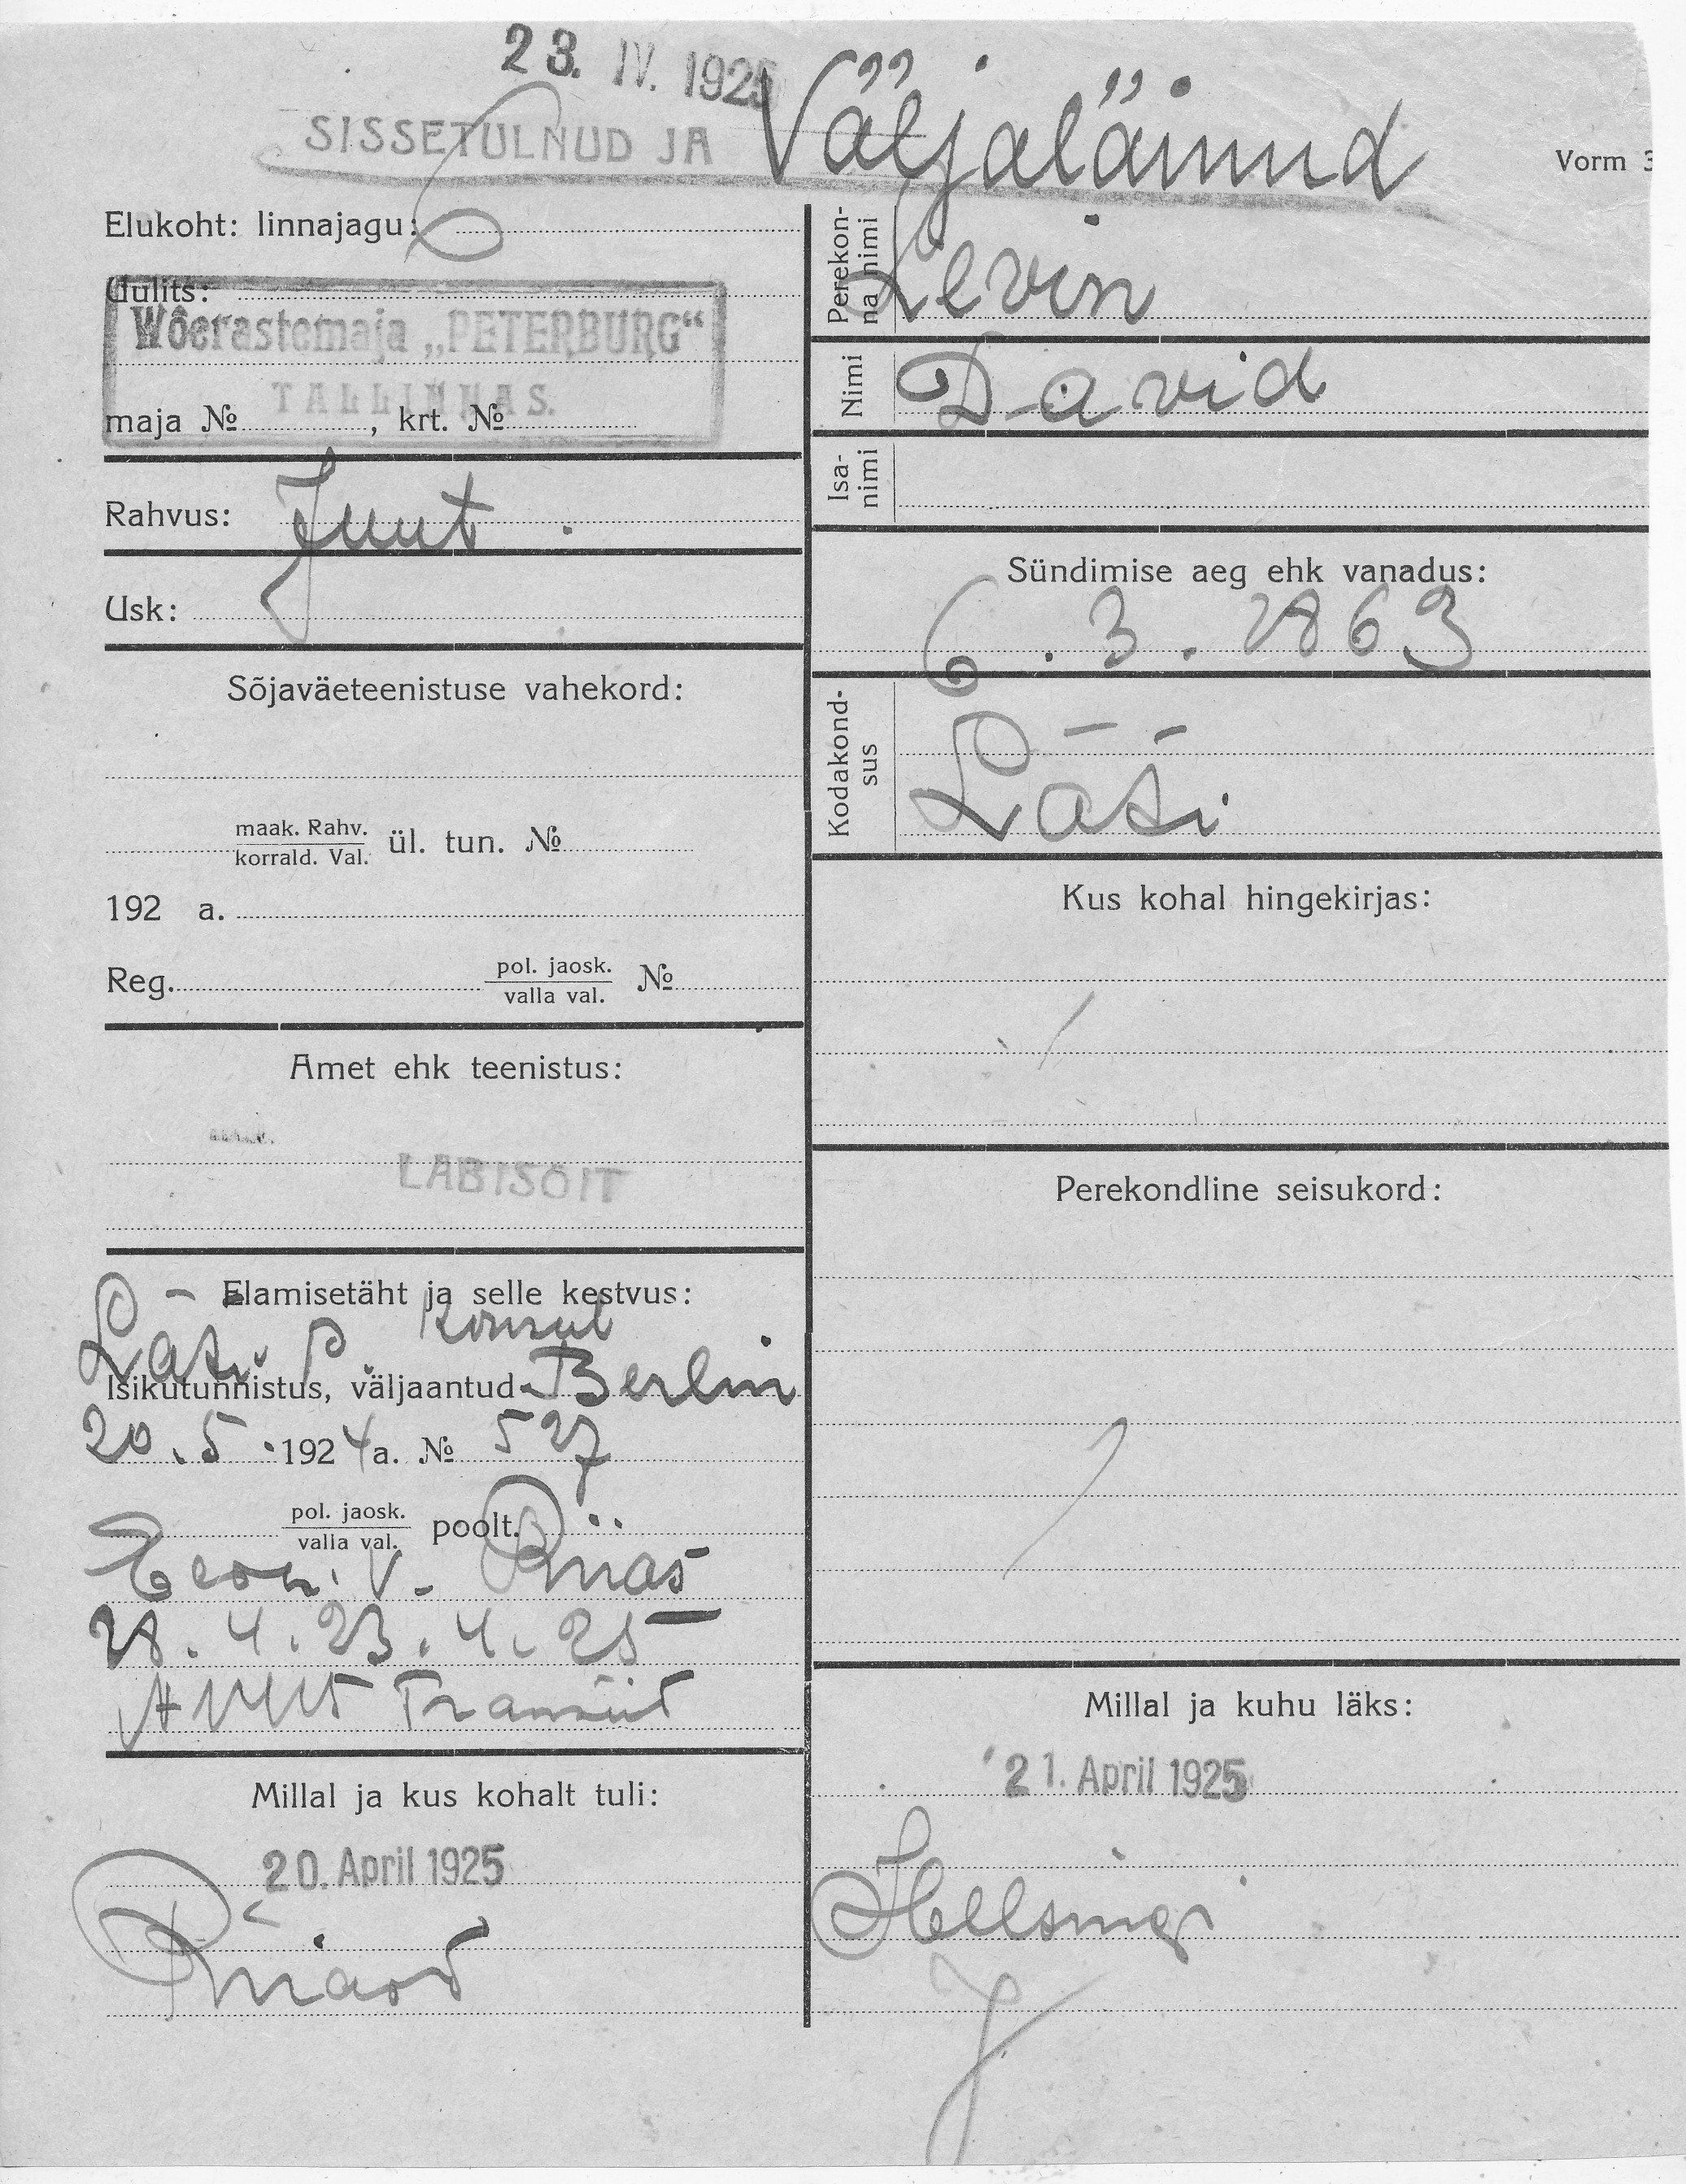 23. IV. 1925
SISSETULNUD JA Väljaläinud
Vorm 3
Elukoht: linnajagu:
Uulits:
Wõerastemaja „PETERBURG“
TALLINNAS.
maja № , krt. №
Rahvus: Juut.
Usk:
Sõjaväeteenistuse vahekord:
maak. Rahv.
korrald. Val. ül. tun. №
192 a.
Reg. pol. jaosk.
valla val. №
Amet ehk teenistus:
LÄBISÕIT
Elamisetäht ja selle kestvus:
Läti P. konsul
Isikutunnistus, väljaantud Berlin
20.5.1924 a. № 527
pol. jaosk.
valla val. poolt.
V. Riias
4.23.4.25
Transiit
Millal ja kus kohalt tuli:
20. April 1925
Riiast
Perekon-
na nimi
Levin
Nimi
David
Isa-
nimi
Sündimise aeg ehk vanadus:
6.3.1863
Kodakond-
sus
Läti
Kus kohal hingekirjas:
Perekondline seisukord:
Millal ja kuhu läks:
21. April 1925
Helsingi